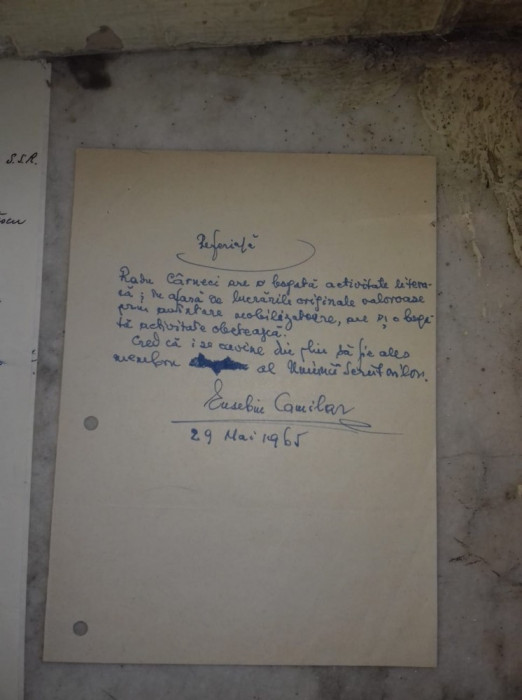 S.S.R.
Referință
Radu Cârneci are o bogată activitate litera-
ră; în afară de lucrările originale valoroase
prin mobilizatoare, are și o boga-
tă activitate obștească.
Cred că i se cuvine din plin să fie ales
membru al Uniunii Scriitorilor.
Eusebiu Camilar
29 Mai 1965